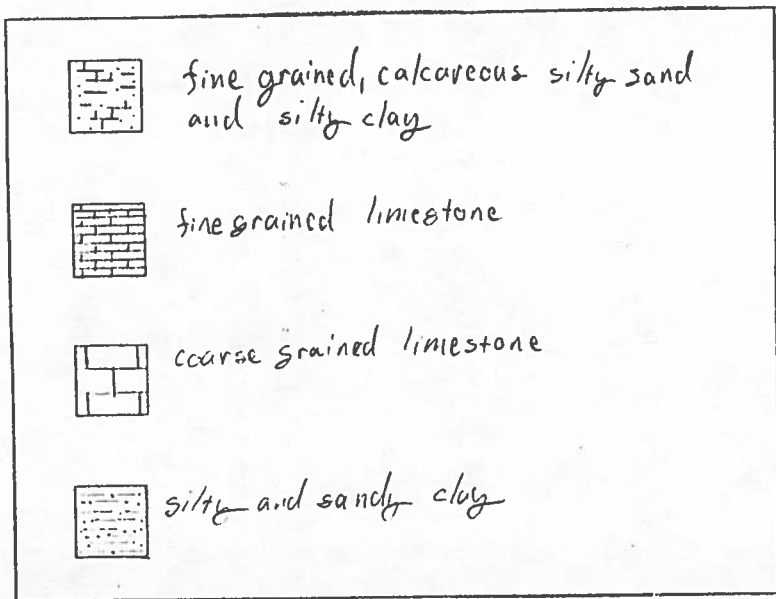 fine grained, calcareous silty sand
and silty clay
fine grained limestone
coarse grained limestone
silty and sandy clay